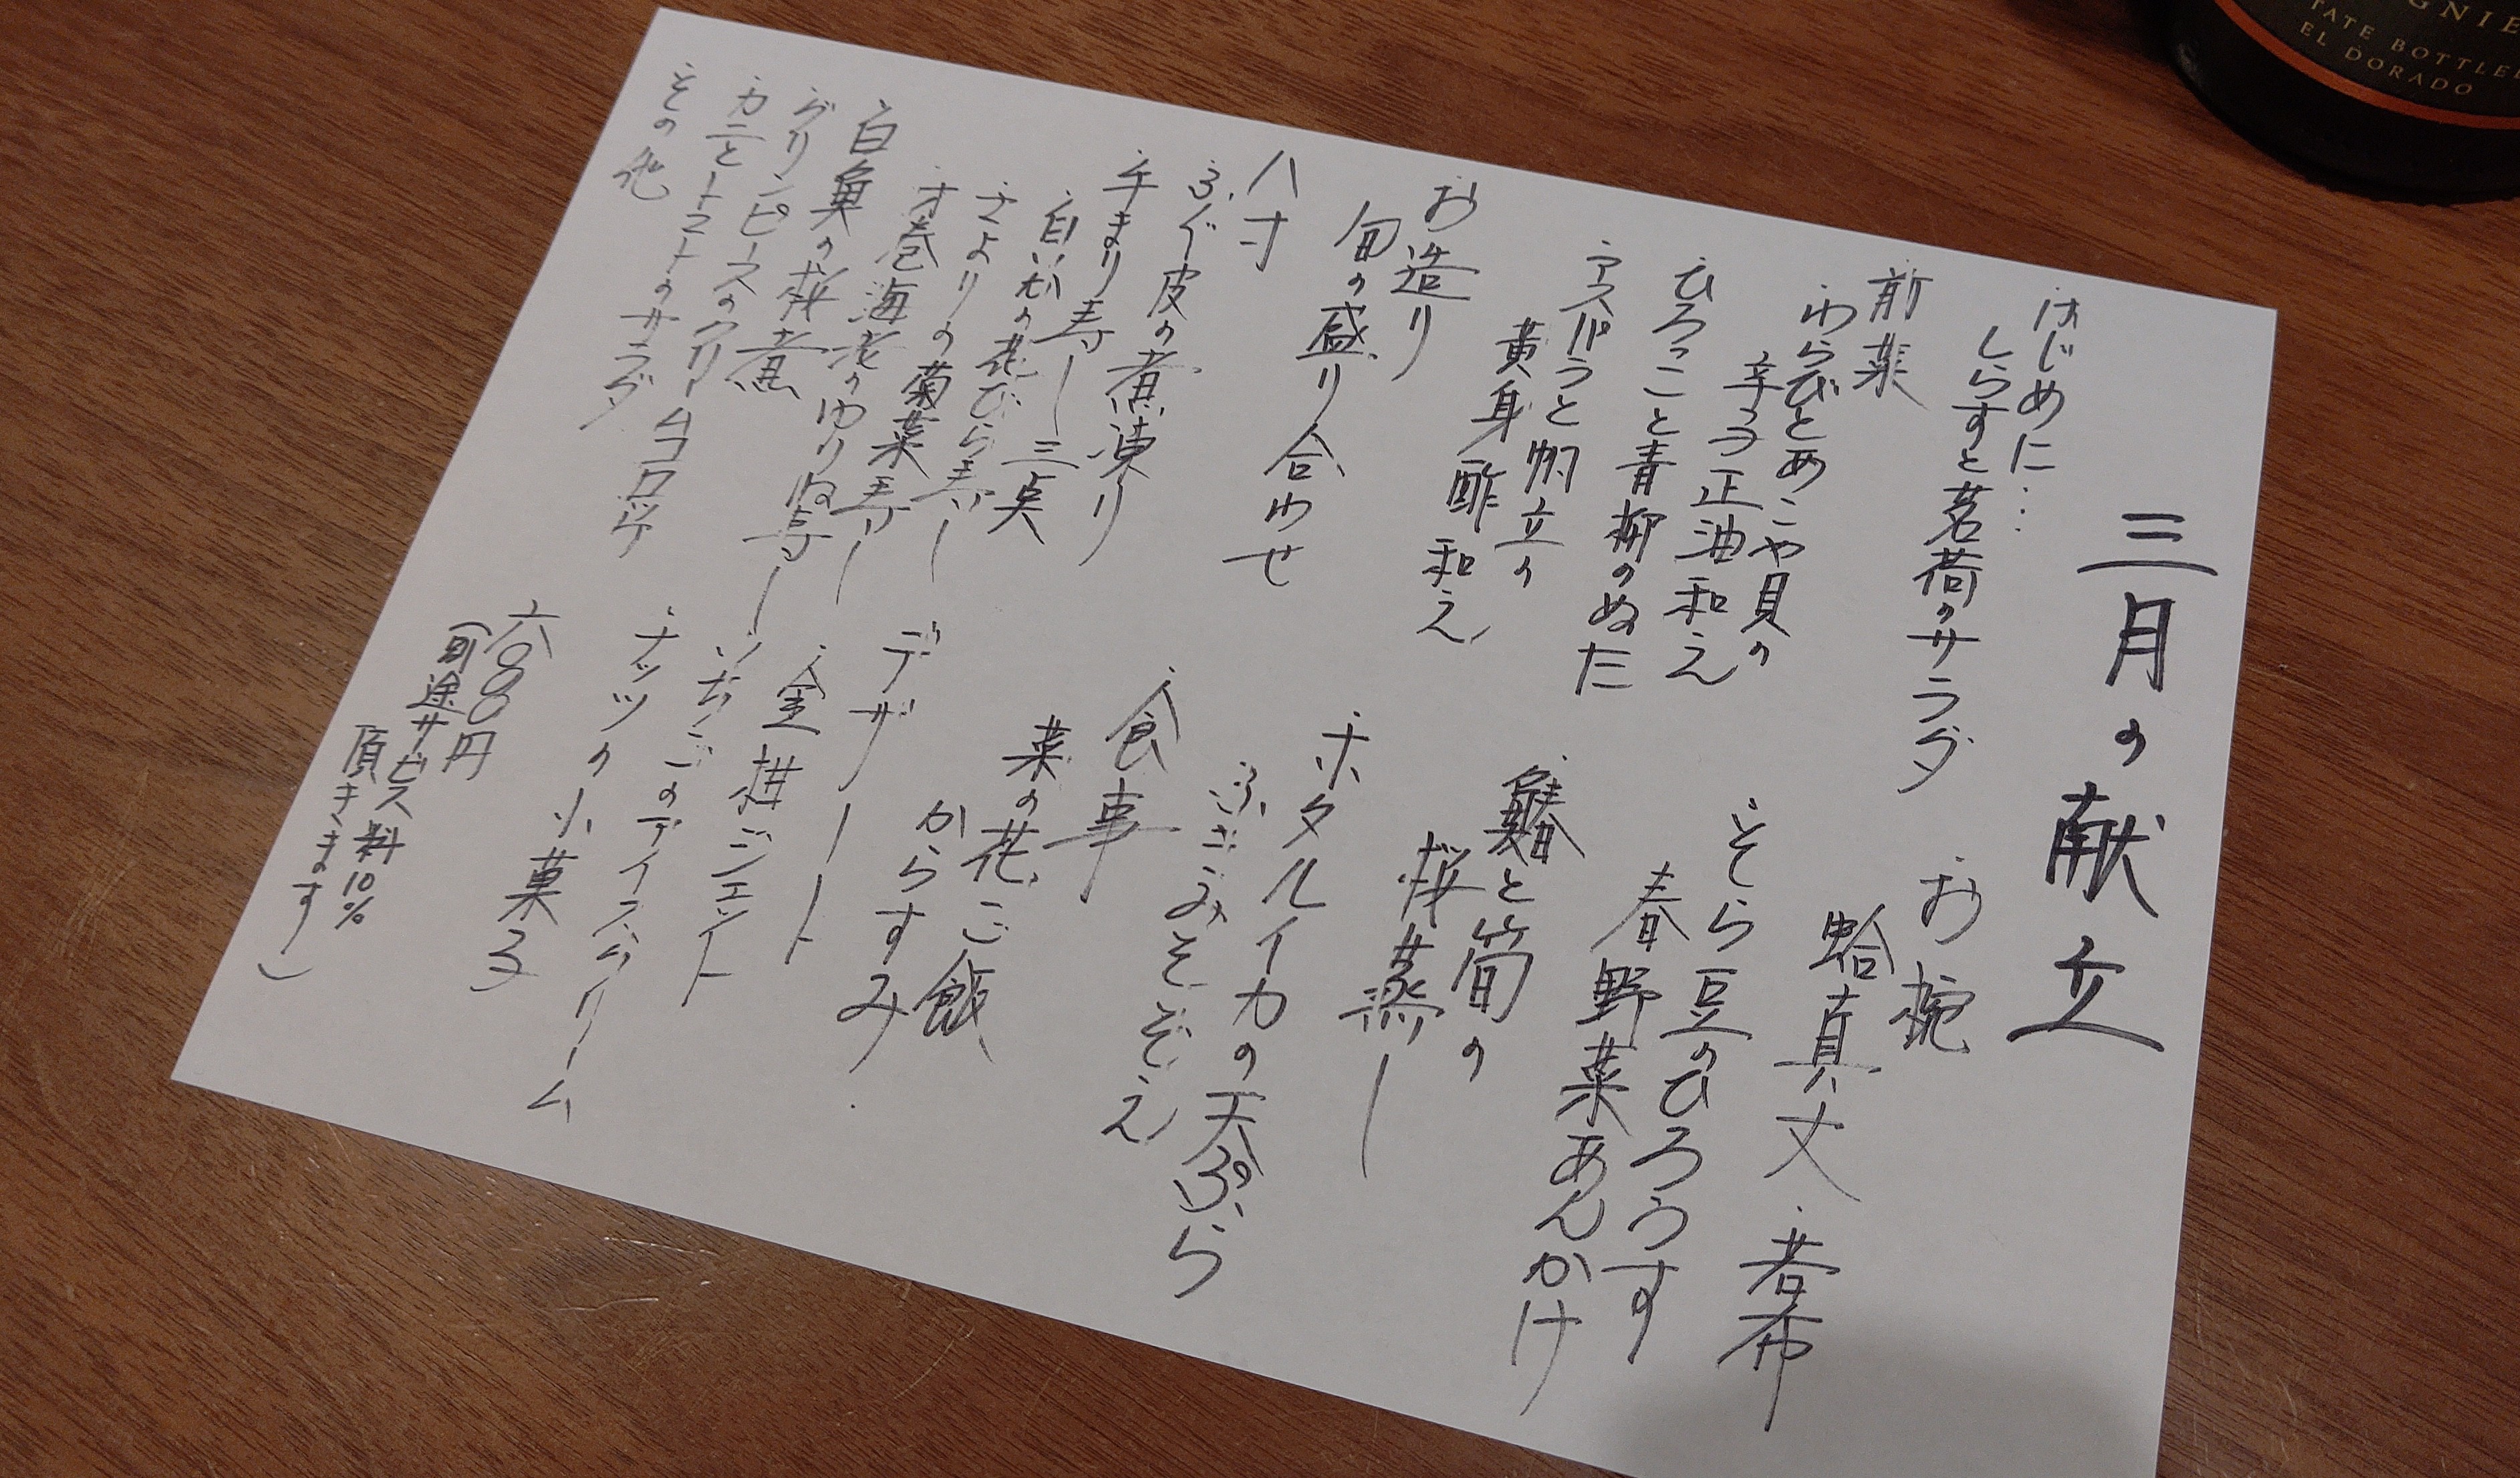 三月の献立
はじめに…
しらすと茗荷のサラダ
前菜
わらびとあこや貝の
辛子正油和え
ひろっこと青柳のぬた
アスパラと帆立の
黄身酢和え
お造り
旬の盛り合わせ
八寸
ふぐ皮の煮凍り
手まり寿し三点
白いかの花びら寿し
さよりの菊菜寿し
才巻海老のゆりね寿し
白魚の桜煮
グリンピースのクリームコロッケ
カニとトマトのサラダ
その他
お椀
蛤真丈・若布
そら豆のひろうす
春野菜あんかけ
鰆と筍の
桜蒸し
ホタルイカの天ぷら
ふきみそぞえ
食事
菜の花ご飯
からすみ
デザート
金柑ジェット
いちごのアイスクリーム
ナッツの小菓子
六〇〇〇円
(別途サービス料10%
頂きます)
GNIE
TATE BOTTLE
EL DORADO